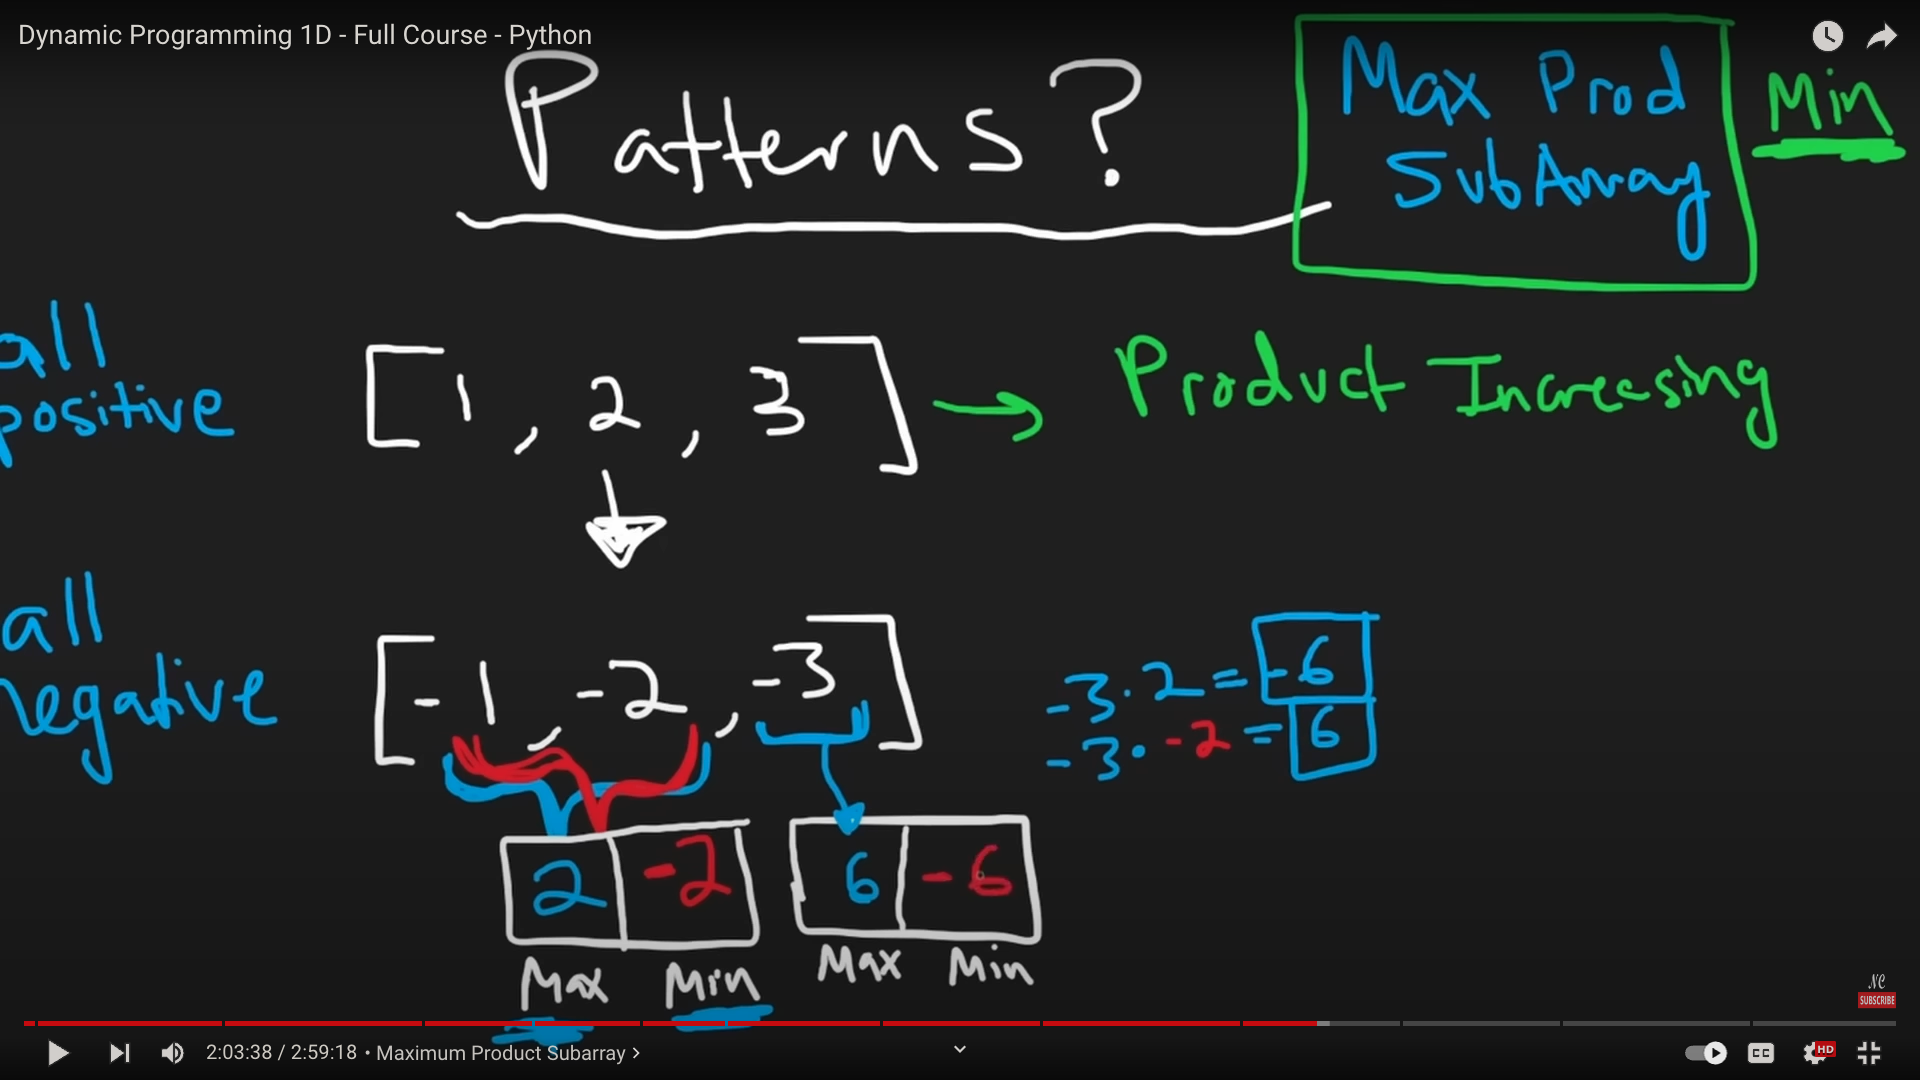 Dynamic Programming 1D - Full Course - Python
Patterns?
Max Prod
SubArray
Min
all
positive
[1, 2, 3] → Product Increasing
all
negative
[-1, -2, -3]
-3·2=-6
-3·-2=6
2 -2
6 -6
Max Min
Max Min
NC
SUBSCRIBE
2:03:38 / 2:59:18 • Maximum Product Subarray >
CC
HD